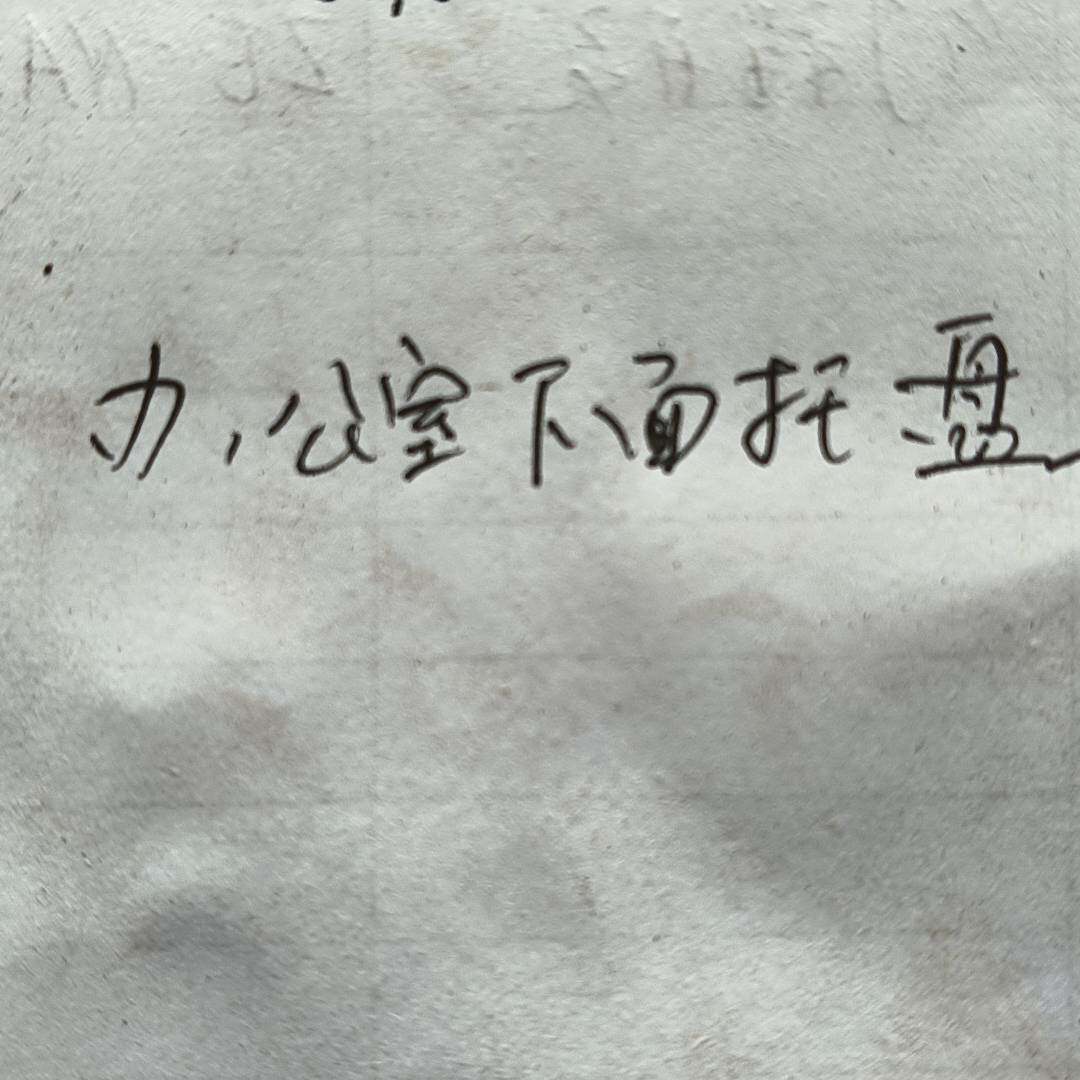 办公室下面托盘